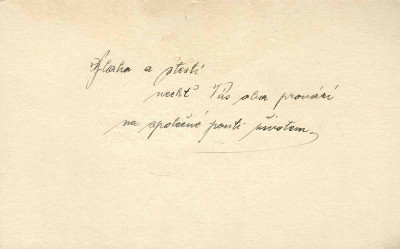 Blaho a štěstí
nechť Vás oba provází
na společné pouti životem.